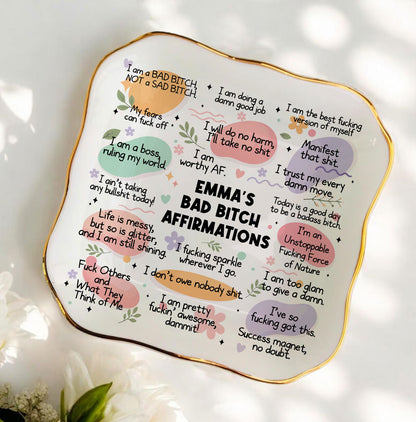 I am a BAD BITCH,
NOT a SAD BITCH.
I am doing a
damn good job
I am the best fucking
version of myself
My fears
can fuck off
I will do no harm,
I'll take no shit.
Manifest
that shit.
I am a boss,
ruling my world.
I am
worthy AF.
I trust my every
damn move.
I ain't taking
any bullshit today!
EMMA'S
BAD BITCH
AFFIRMATIONS
Today is a good day
to be a badass bitch.
Life is messy,
but so is glitter,
and I am still shining.
I'm an
Unstoppable
Fucking Force
of Nature
I fucking sparkle
wherever I go.
I am too glam
to give a damn.
Fuck Others
and
What They
Think of Me
I don't owe nobody shit.
I am pretty
fuckin' awesome,
dammit!
I've so
fucking got this.
Success magnet,
no doubt.